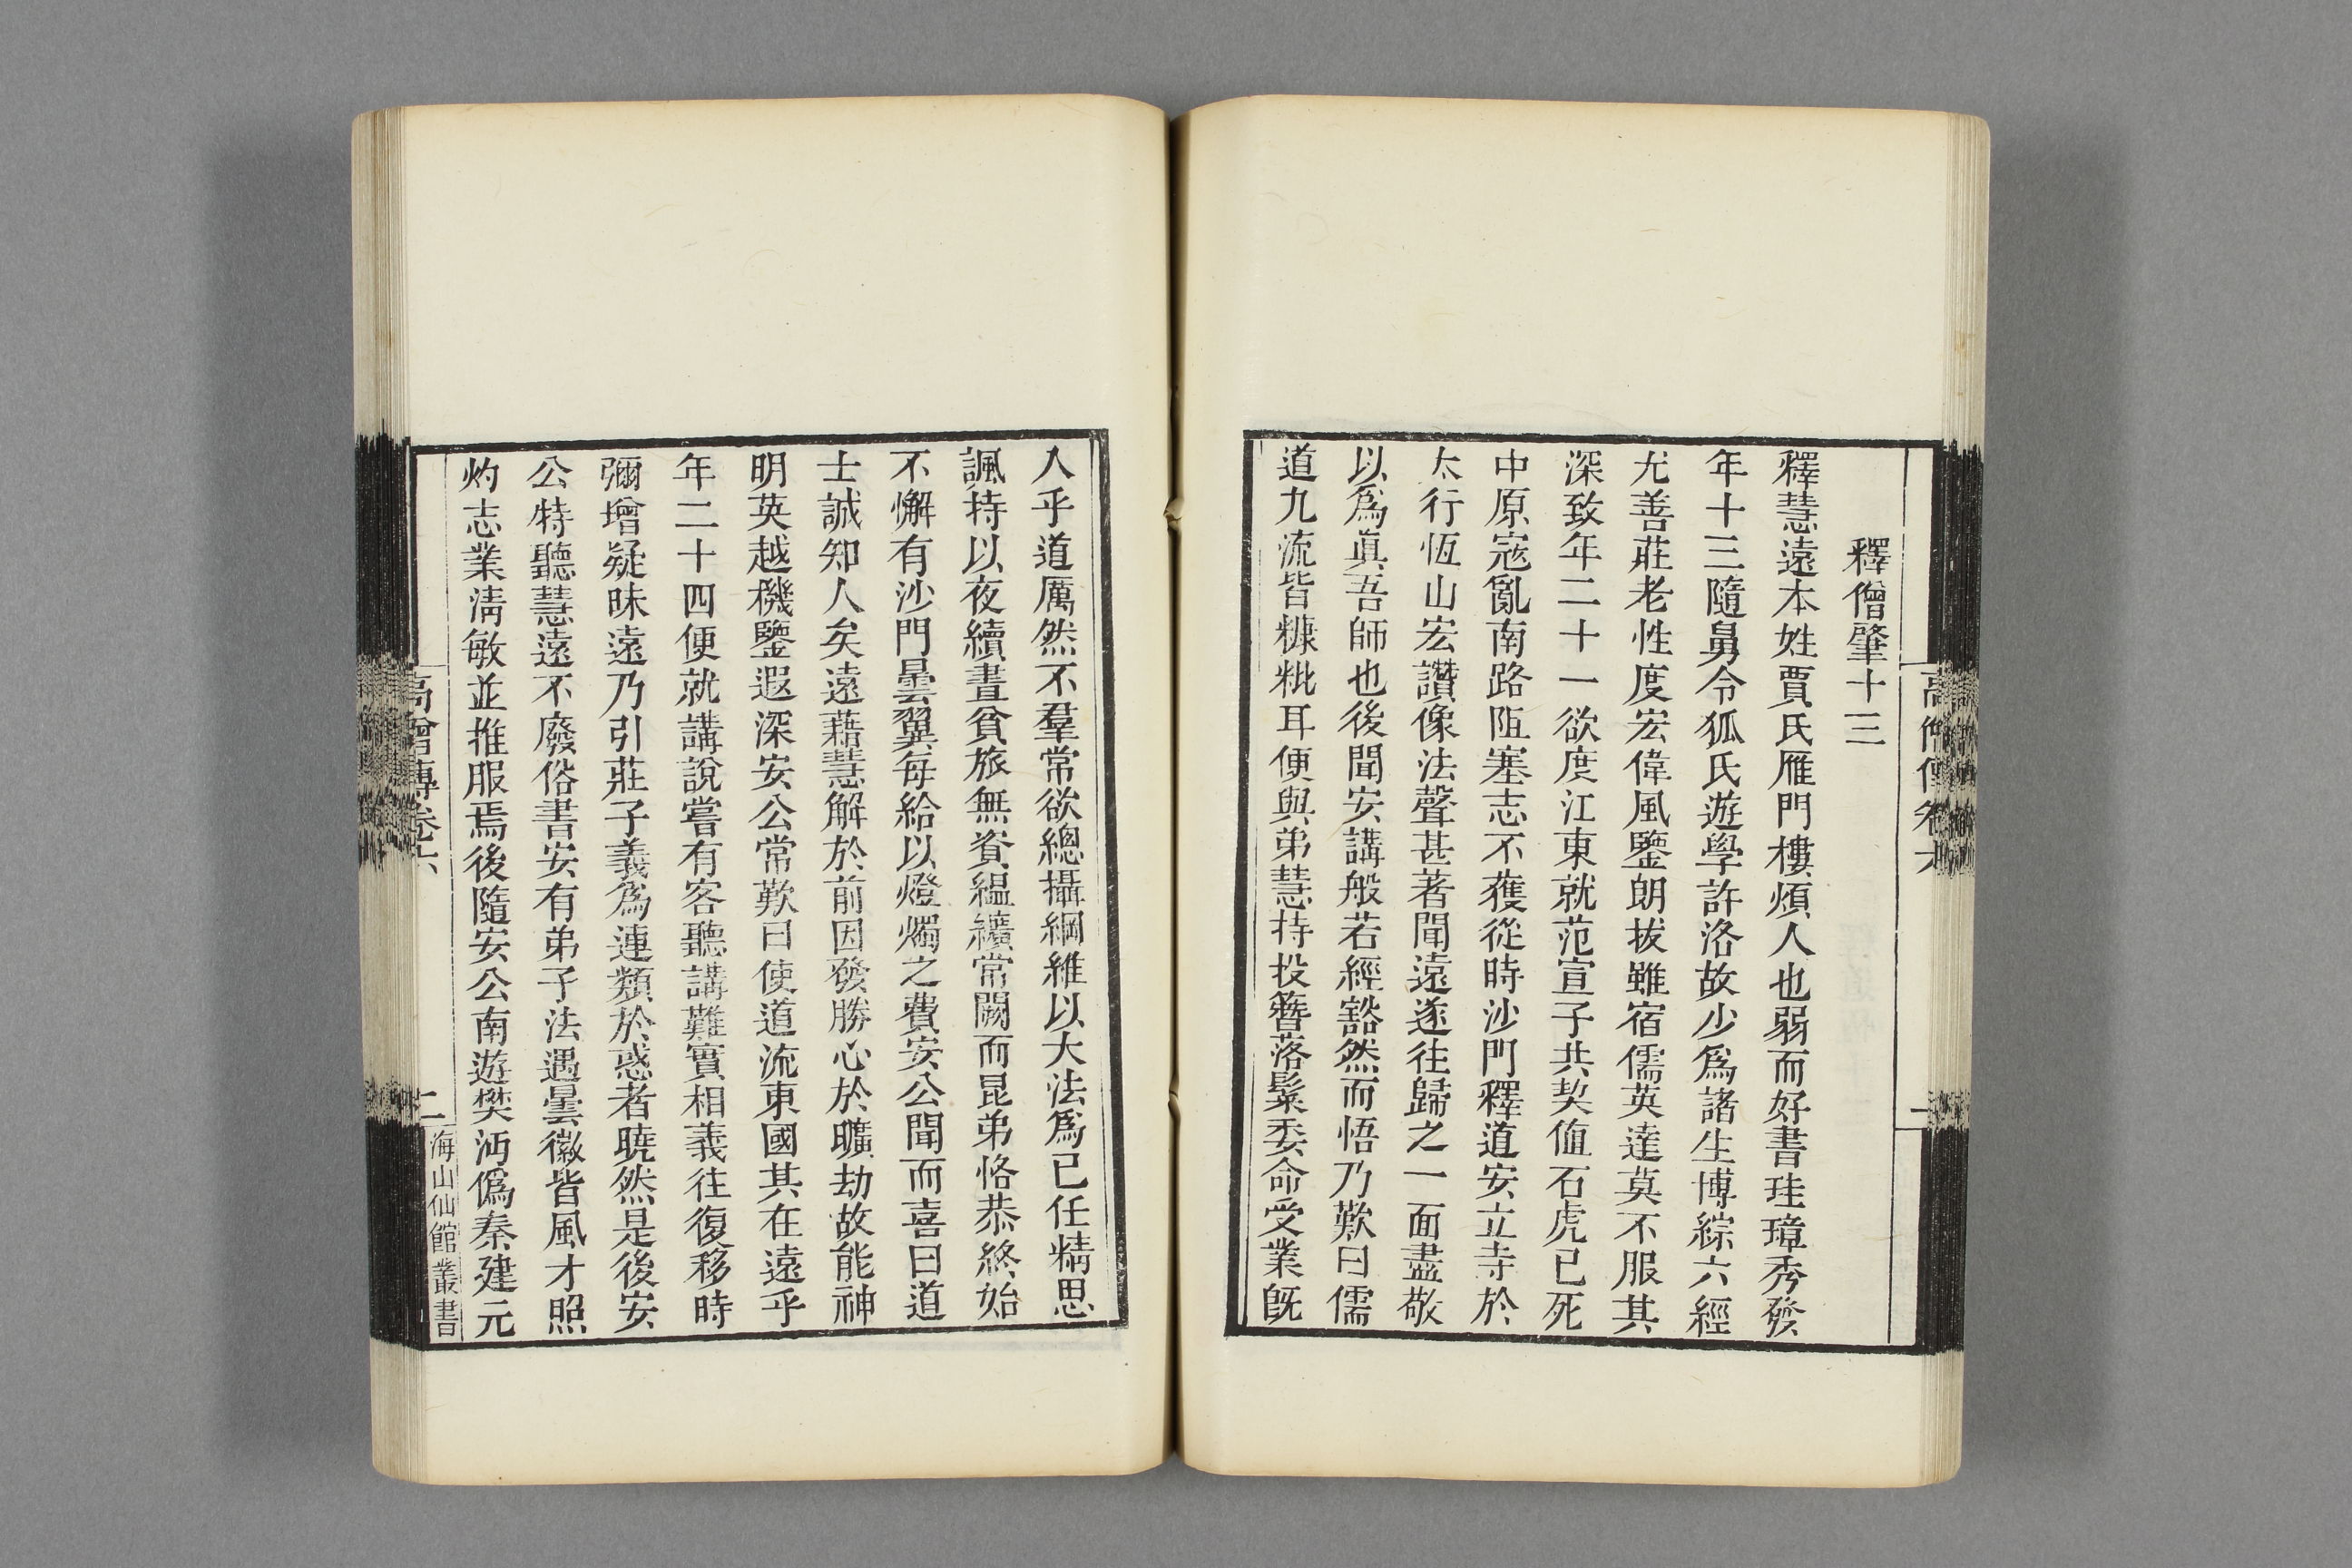 高僧傳卷六
二
釋僧肇十三
釋慧遠本姓賈氏雁門樓煩人也弱而好書珪璋秀發
年十三隨舅令狐氏遊學許洛故少爲諸生博綜六經
尤善莊老性度宏偉風鑒朗拔雖宿儒英達莫不服其
深致年二十一欲度江東就范宣子共契値石虎已死
中原寇亂南路阻塞志不獲從時沙門釋道安立寺於
太行恆山宏讚像法聲甚著聞遠遂往歸之一面盡敬
以爲眞吾師也後聞安講般若經豁然而悟乃歎曰儒
道九流皆糠粃耳便與弟慧持投簪落䰂委命受業旣
入乎道厲然不羣常欲總攝綱維以大法爲已任精思
諷持以夜續晝貧旅無資縕纊常闕而昆弟恪恭終始
不懈有沙門曇翼每給以燈燭之費安公聞而喜曰道
士誠知人矣遠藉慧解於前因發勝心於曠劫故能神
明英越機鑒遐深安公常歎曰使道流東國其在遠乎
年二十四便就講說嘗有客聽講難實相義往復移時
彌增疑昧遠乃引莊子義爲連類於惑者曉然是後安
公特聽慧遠不廢俗書安有弟子法遇曇徽皆風才照
灼志業淸敏並推服焉後隨安公南遊樊沔僞秦建元
高僧傳卷六
二
海山仙館叢書